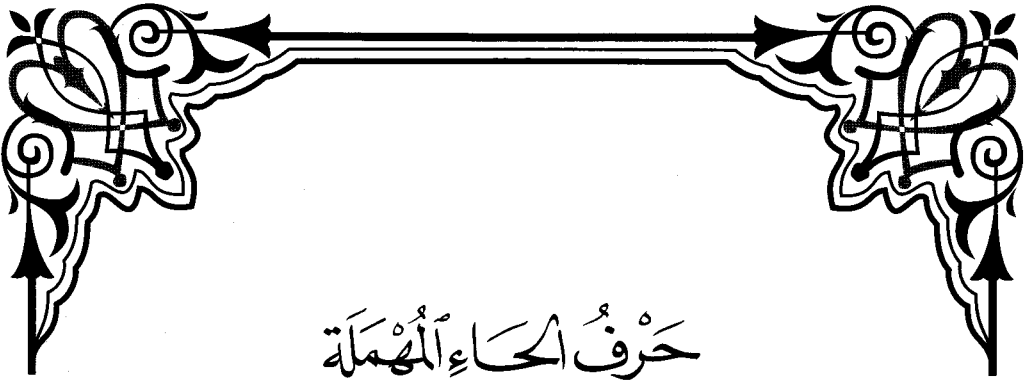 حَرْفُ الحَاءِ ٱلمُهْمَلَة